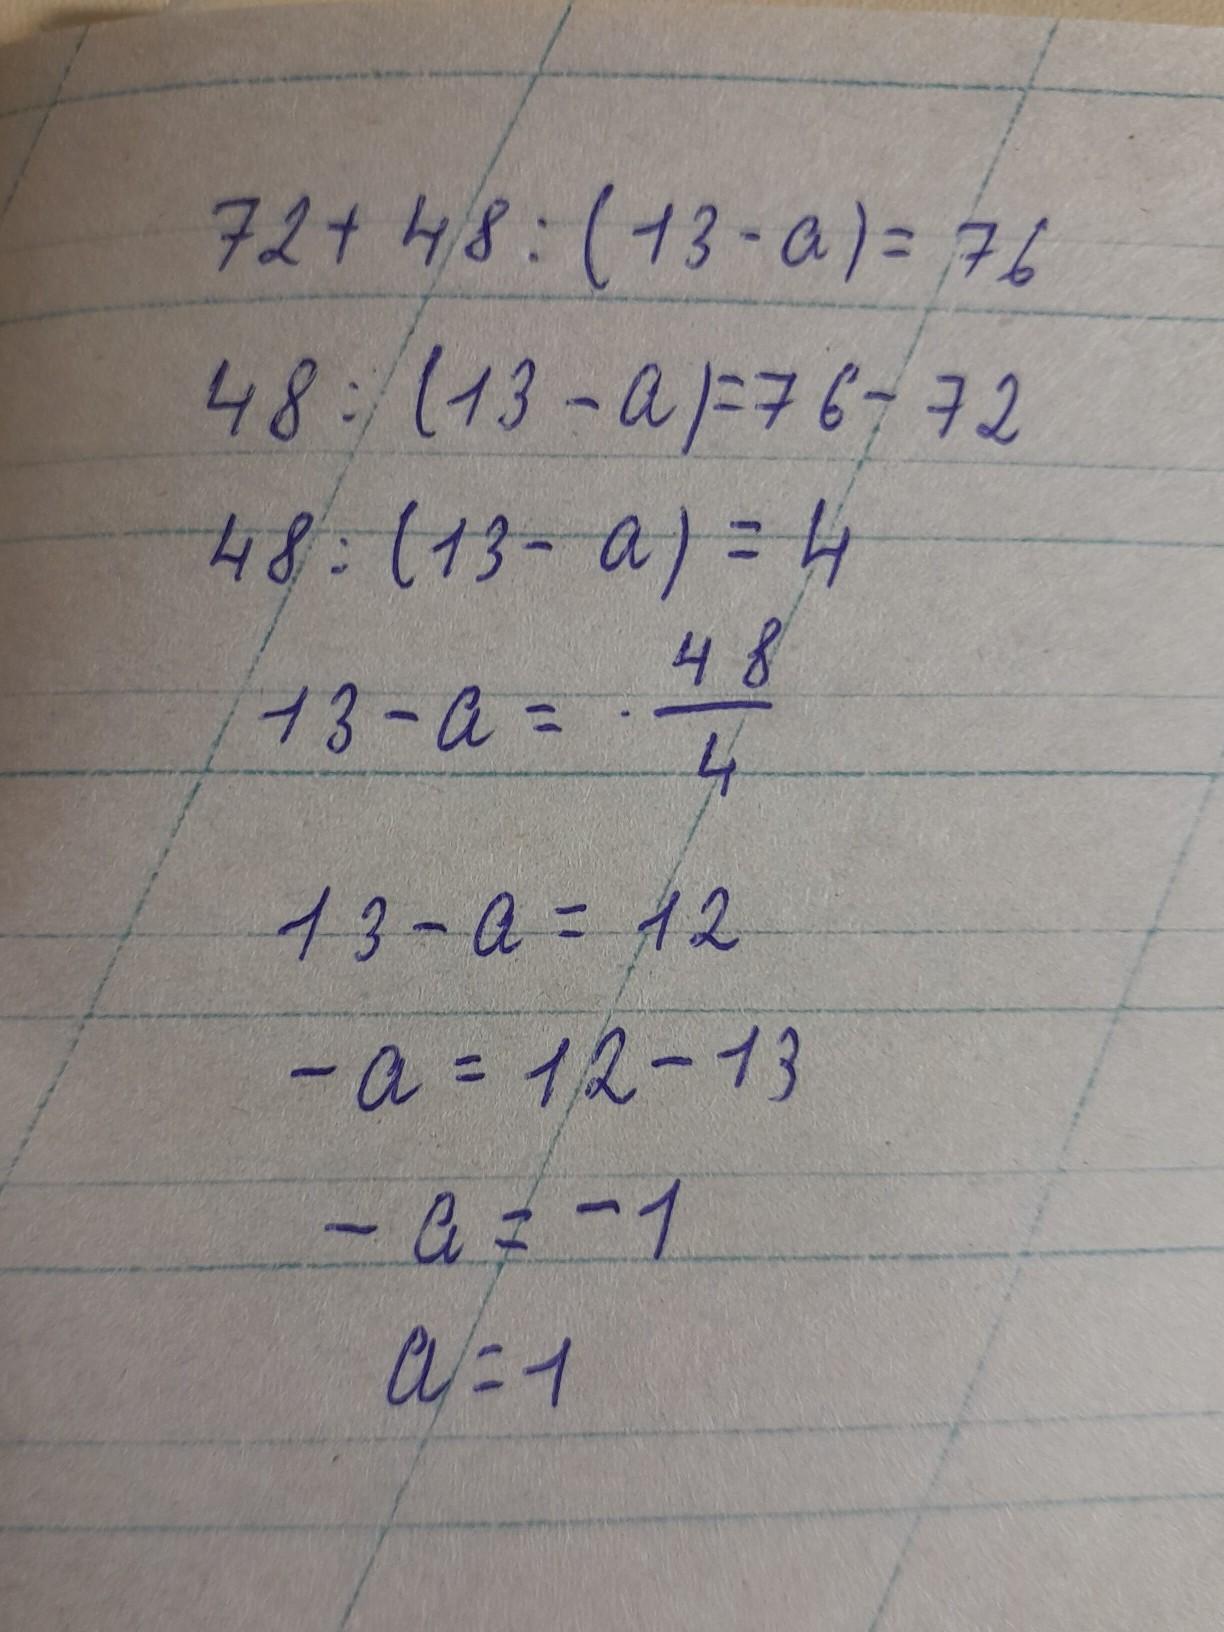 72 + 48 : (13 - a) = 76
48 : (13 - a) = 76 - 72
48 : (13 - a) = 4
13 - a = \frac{48}{4}
13 - a = 12
- a = 12 - 13
- a = - 1
a = 1